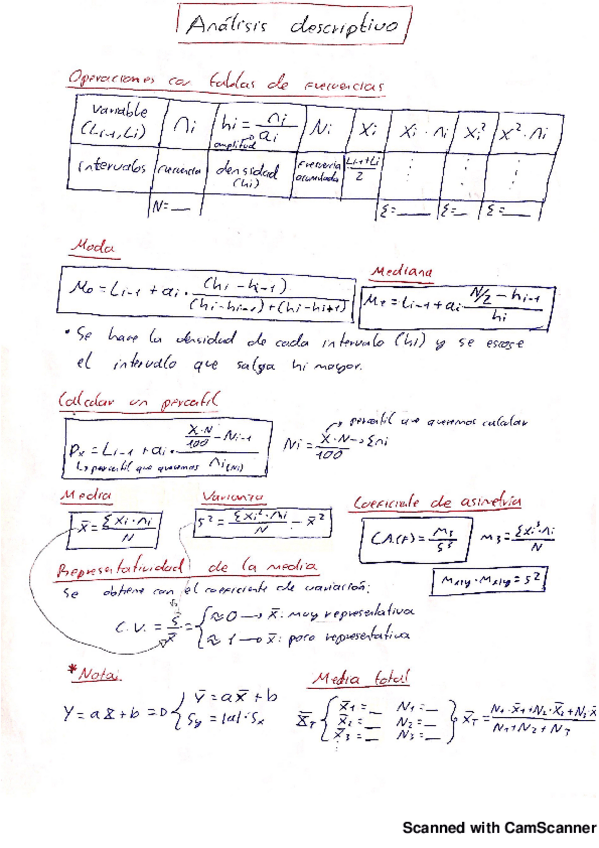 Análisis descriptivo
Operaciones con tablas de frecuencias
variable (Li-1, Li) | ni | hi = ni/ai → amplitud | Ni | Xi | Xi · ni | Xi² | X² · ni
intervalos | frecuencia | densidad (hi) | frecuencia acumulada | (Li-1+Li)/2 | ⋮ | ⋮ | ⋮
N = __ | Σ = __ | Σ = __ | Σ = __
Moda
Mo = Li-1 + ai · (hi - hi-1) / ((hi - hi-1) + (hi - hi+1))
Mediana
Me = Li-1 + ai · (N/2 - hi-1) / hi
• Se hace la densidad de cada intervalo (hi) y se escoge
el intervalo que salga hi mayor.
Calcular un percentil
Px = Li-1 + ai · (X·N/100 - Ni-1) / ni(Ni)
↳ percentil que queremos
→ percentil que queremos calcular
Ni = X·N/100 → Σni
Media
x̄ = Σxi·ni / N
Varianza
S² = Σxi²·ni / N - x̄²
Coeficiente de asimetría
C.A.(F) = m3 / S³
m3 = Σxi³·ni / N
Mx/y · Mx/y = S²
Representatividad de la media
Se obtiene con el coeficiente de variación:
C.V. = S / x̄ = { ≈ 0 → x̄: muy representativa
≈ 1 → x̄: poco representativa
* Nota:
Y = aX + b ⇒ { Ȳ = aX̄ + b
Sy = |a| · Sx
Media total
X̄T { X̄1 = __ N1 = __
X̄2 = __ N2 = __
X̄3 = __ N3 = __ } X̄T = N1·X̄1 + N2·X̄2 + N3·X̄ / N1 + N2 + N3
Scanned with CamScanner